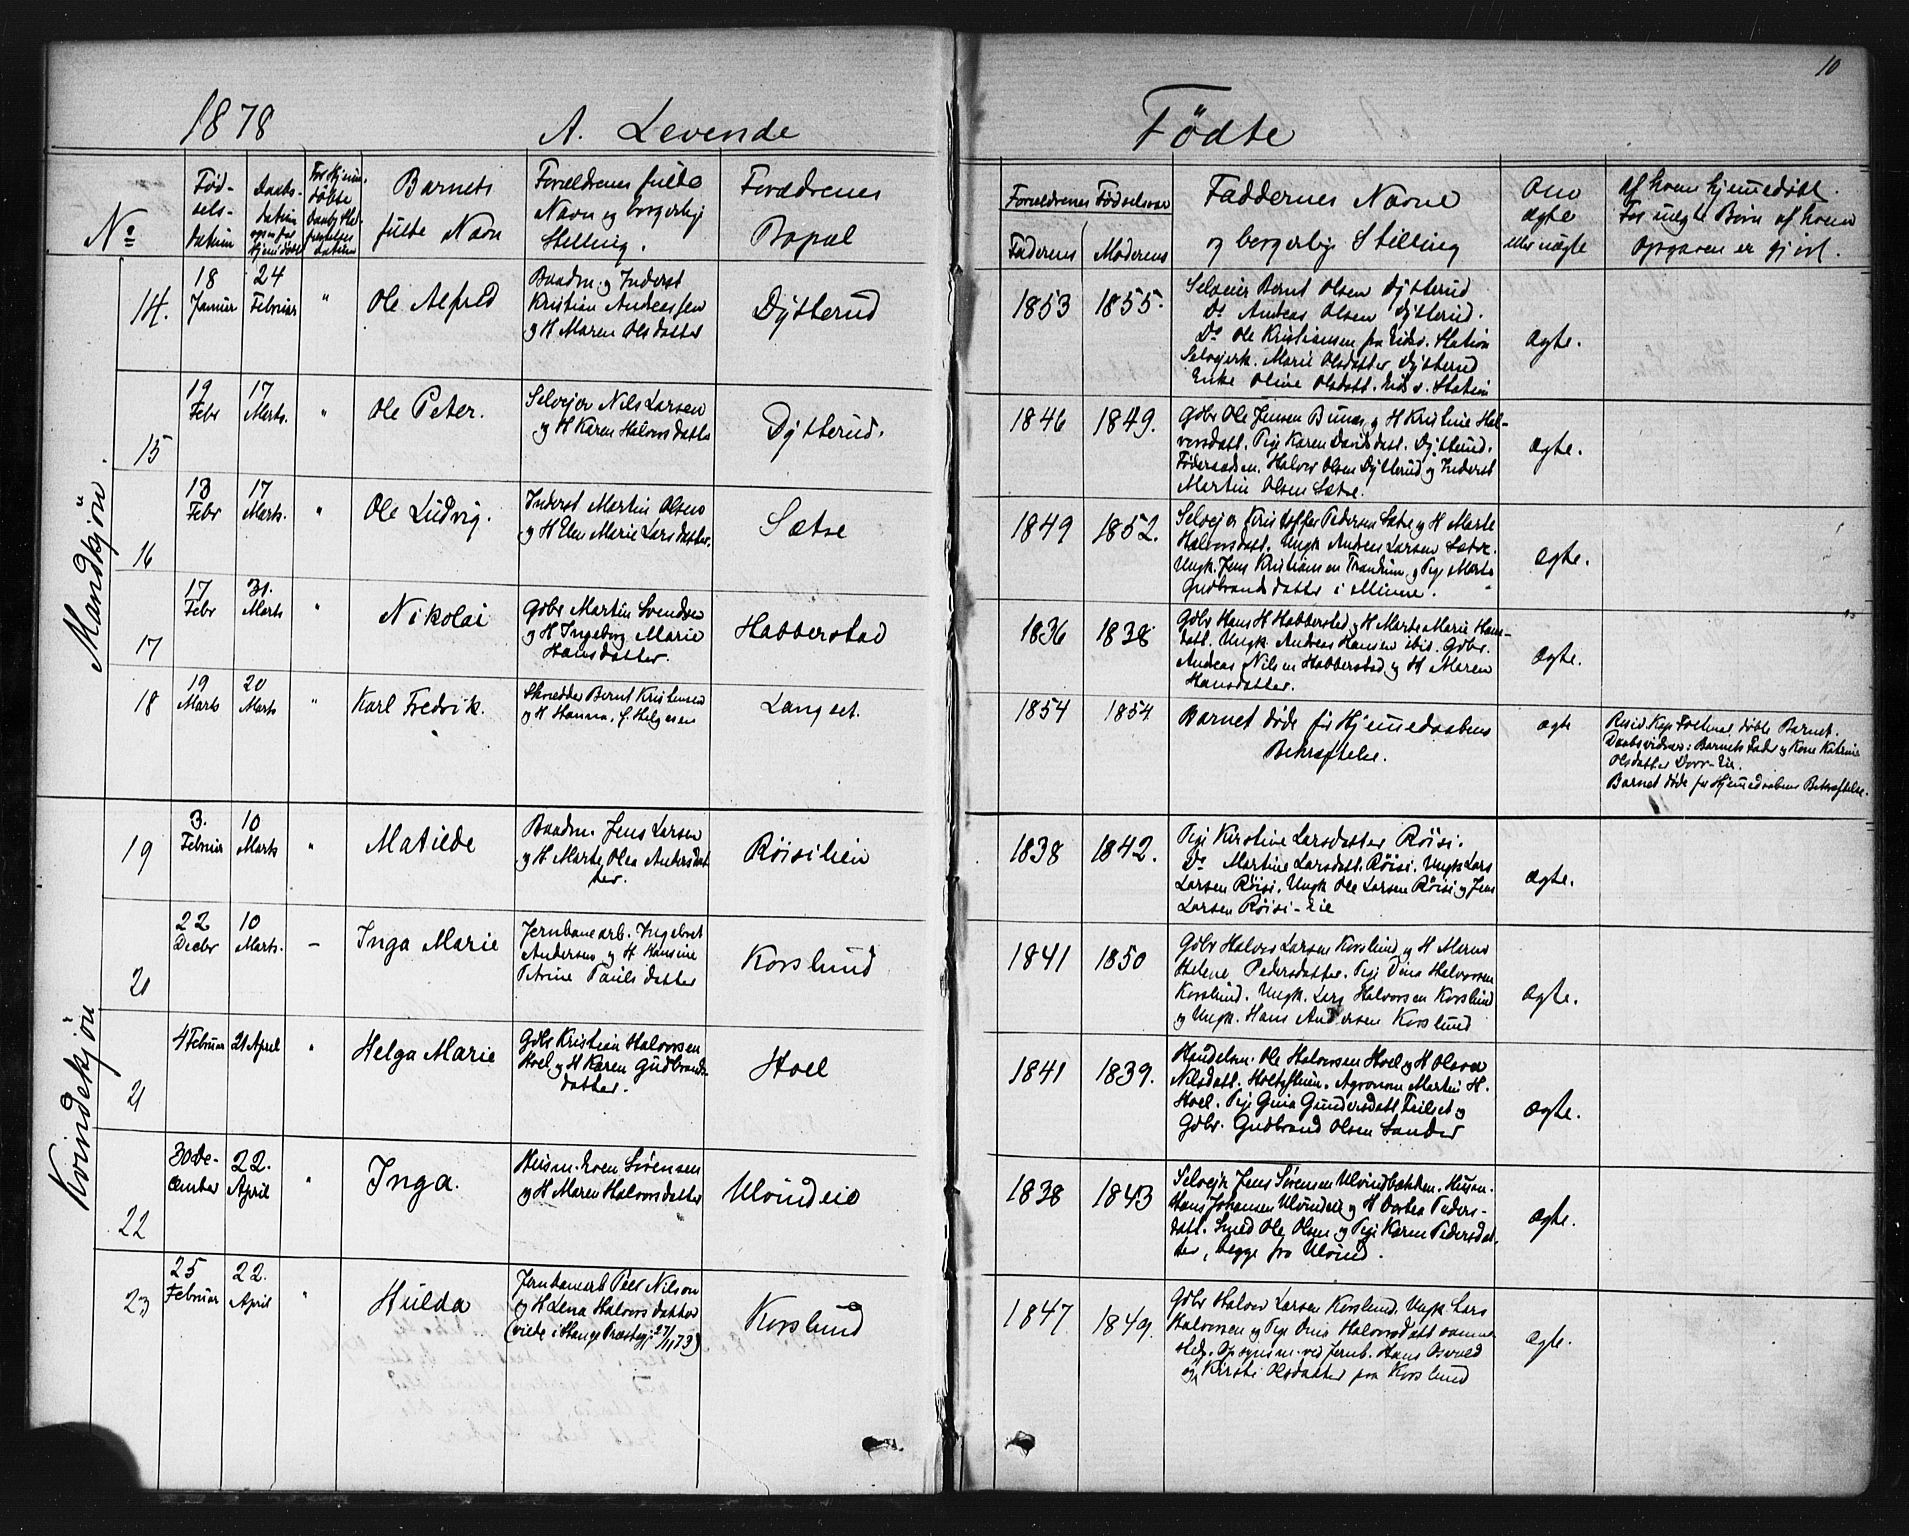 10
1878 A. Levende Födte
No
Fød-
sels-
datum
Daabs-
datum
Barnets
fulde Navn
Forældrenes fulde
Navn og borgerlige
Stilling.
Forældrenes
Bopæl
Forældrenes Fødselsaar
Faderens Moderens
Faddernes Navne
og borgerlige Stilling
Om
ægte
eller uægte
Af hvem hjemmedøbt.
For uægte Børn af hvem
Opgaven er gjort.
Mandkjön
14.
18
Januar
24
Februar
"
Ole Alfred
Baadm. og Inderst
Kristian Andreassen
og H Maren Olsdatter
Dytterud
1853 1855.
Selveier Bernt Olsen Dytterud
Do Andreas Olsen Dytterud.
Do Ole Kristiansen fra Eidsv. Station
Selveierk. Marie Olsdatter Dytterud
Enke Oline Olsdatt. Eidsv. Station
Ægte.
15
19
Febr
17
Marts.
"
Ole Peter.
Selvejer Nils Larsen
og H Karen Halvorsdatter
Dytterud.
1846 1849.
Gdbr Ole Jensen Bunæs og H Kristine Hal-
vorsdatt. Pige Karen Davidsdatt. Dytterud.
Føderaadsm. Halvor Olsen Dytterud og Inderst
Martin Olsen Sætre.
Ægte.
16
13
Febr
17
Marts.
"
Ole Ludvig.
Inderst Martin Olsen
og H Elen Marie Larsdatter.
Sætre
1849 1852.
Selvejer Kristoffer Pedersen Sætre og H Marte
Halvorsdatt. Ungk Andreas Larsen Sætre.
Ungk. Jens Kristiansen Trandum og Pige Marte
Gudbrandsdatter i Minne.
Ægte.
17
17
Febr
31.
Marts
"
Nikolai
Gdbr Martin Svendsen
og H Ingeborg Marie
Hansdatter.
Habberstad
1836 1838
Gdbr Hans H Habberstad og H Marte Marie Hans-
datt. Ungk. Andreas Hansen ibid. Gdbr.
Andreas Nilsen Habberstad og H Maren
Hansdatter.
Ægte.
18
19
Marts
20
Marts
"
Karl Fredrik.
Skrædder Bernt Kristensen
og H Hanna, f. Helgesen
Langset.
1854 1854
Barnet døde før Hjemmedaabens
Bekræftelse.
Ægte
Resid. Kap. døbte Barnet.
Daabsvidner: Barnets Fader og Kone Katrine
Olsdatter Dorr-Eie.
Barnet døde før Hjemmedaabens Bekræftelse.
Kvindekjön
19
3.
Februar
10
Marts
"
Matilde
Baadm. Jens Larsen
og H Marte Olea Andersdat
ter.
Röisilien
1838 1842.
Pige Kirstine Larsdatter Röisi.
Do Martine Larsdatt. Röisi. Ungk Lars
Larsen Röisi. Ungk Ole Larsen Röisi og Jens
Larsen Röisi-eie
Ægte.
21
22
Decbr
10
Marts.
–
Inga Marie
Jernbanearb. Ingebret
Andersen og H Hansine
Petrine Paulsdatter
Korslund
1841 1850
Gdbr Halvor Larsen Korslund og H Maren
Helene Pedersdatter. Pige Dina Halvorsen
Korslund. Ungk. Lars Halvorsen Korslund
og Ungk. Hans Andersen Korslund
Ægte.
21
4 Februar
21 April
"
Helga Marie
Gdbr Kristian Halvorsen
Hoel og H Karen Gudbrands-
datter.
Hoel
1841 1839.
Handelsm. Ole Halvorsen Hoel og H Olava
Nilsdatt. Agronom Martin H.
Hoel. Pige Gina Gundersdatt og
Gdbr. Gudbrand Olsen Sander
Ægte.
22
30 De-
cember
22.
April
"
Inga.
Husm. Even Sörensen
og H Maren Halvorsdatter
Ulvindeie
1838 1843
Selvejer Jens Sörensen Ulvindbakken. Husm.
Hans Johansen Ulvindeie og H Dortea Peders-
datt. Smed Ole Olsen og Pige Karen Pedersdat-
ter, begge fra Ulvind.
Ægte.
23
25
Februar
22.
April
"
Hulda
Jernbanearb Peer Nilson
og H Lena Halvorsdatter
(viede i Stange Præstegj. 27/11 73)
Korslund
1847 1849.
Gdbr Halvor Larsen Korslund. Ungk Lars
Halvorsen og Pige Dina Halvorsdatt samme-
steds. Opsynsm. ved Jernb. Hans Osvald
og Kirsti Olsdatter fra Korslund
Ægte.